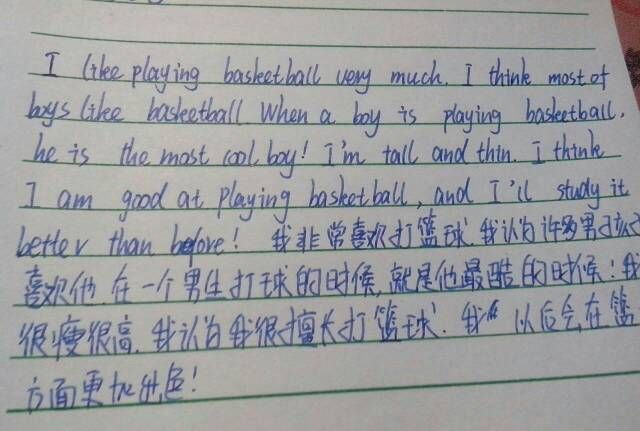 I like playing basketball very much. I think most of
boys like basketball When a boy is playing basketball,
he is the most cool boy! I'm tall and thin. I think
I am good at playing basketball, and I'll study it
better than before! 我非常喜欢打篮球. 我认为许多男
喜欢他. 在一个男生打球的时候, 就是他最酷的时候! 我
很瘦很高. 我认为我很擅长打篮球. 我 以后会在篮
方面更加出色!